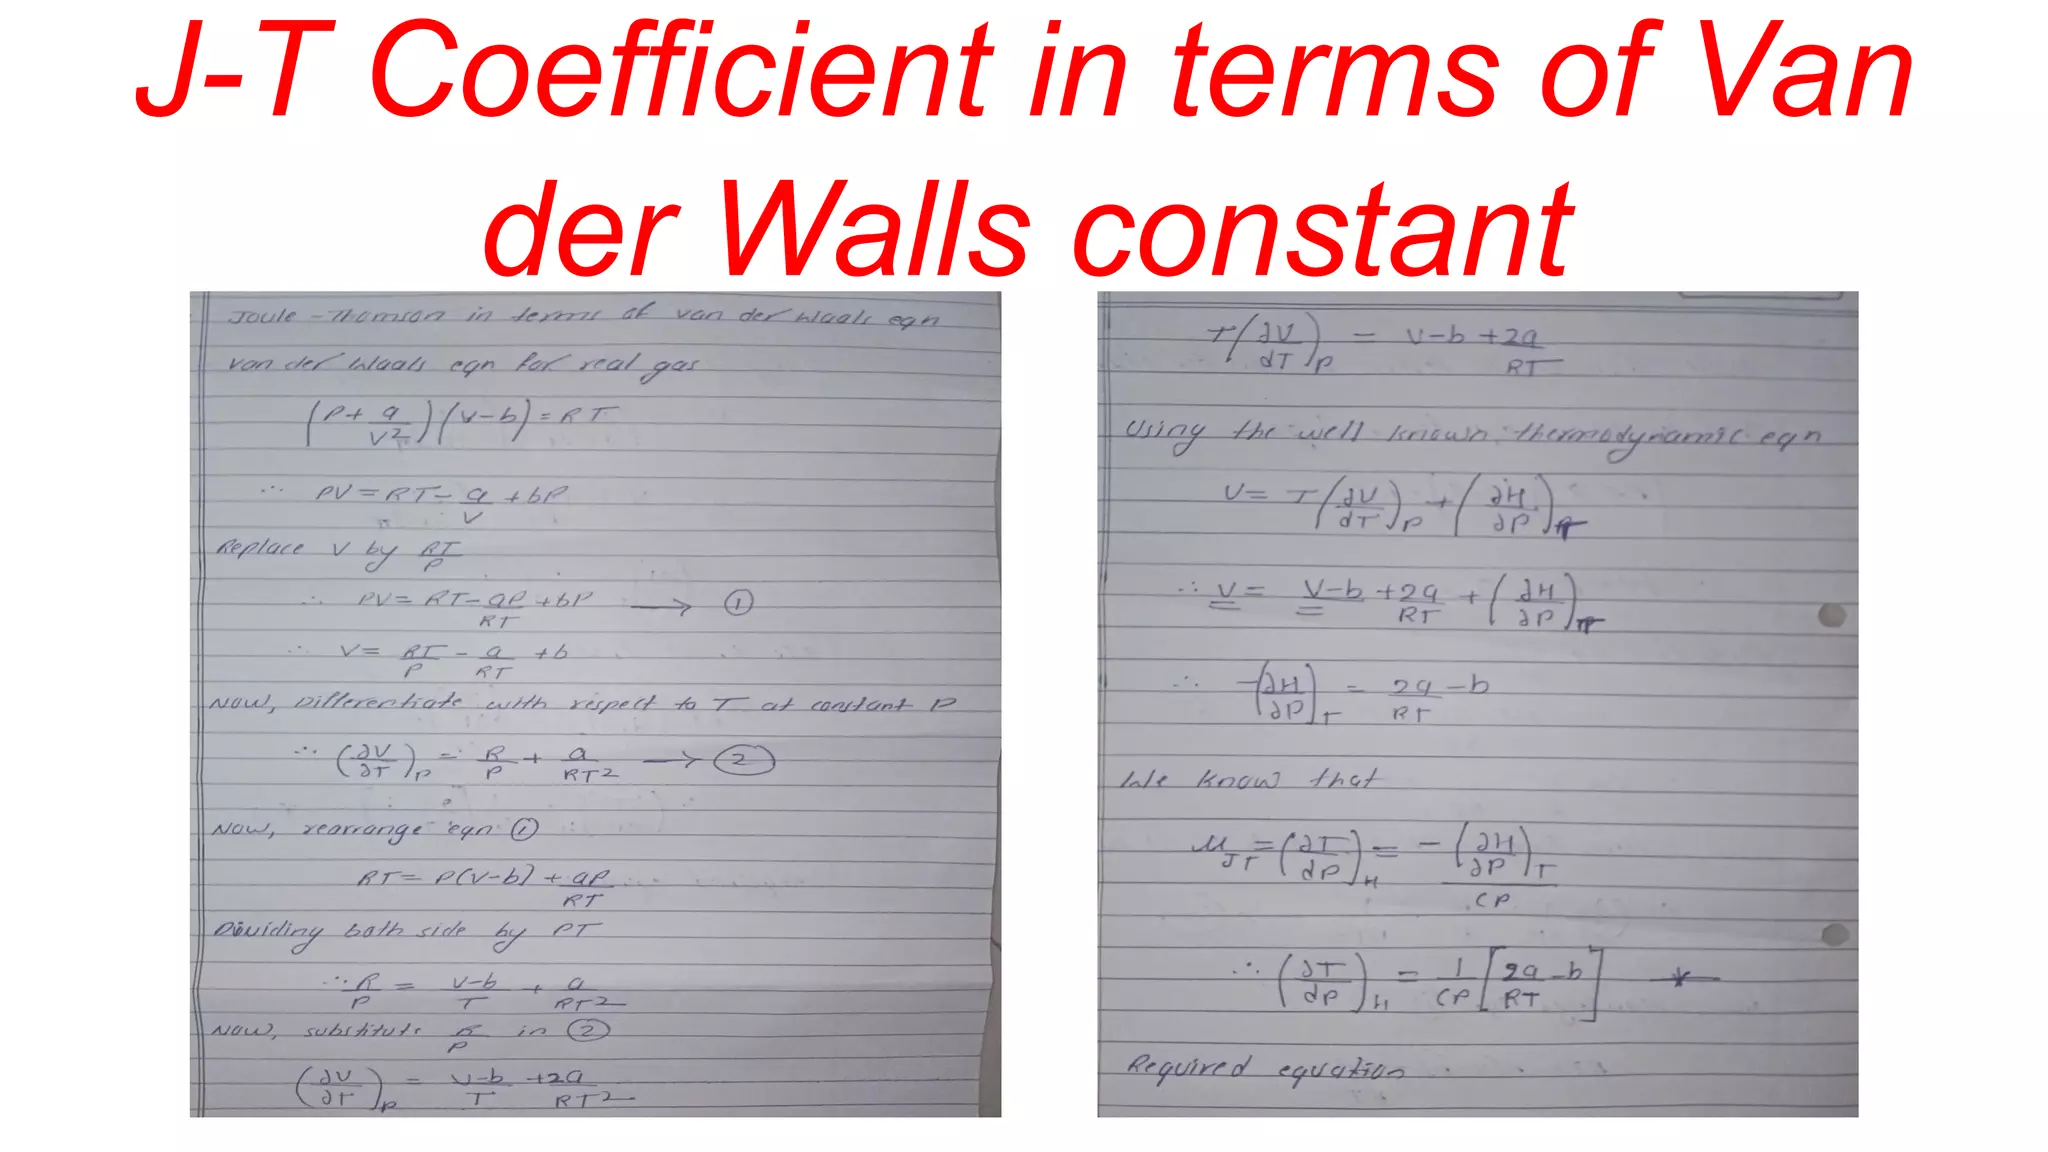 J-T Coefficient in terms of Van
der Walls constant
Joule-Thomson in terms of van der Waals eqn
van der Waals eqn for real gas
(P + a/V²)(V-b) = RT
∴ PV = RT - a/V + bP
Replace V by RT/P
∴ PV = RT - aP/RT + bP → ①
∴ V = RT/P - a/RT + b
Now, Differentiate with respect to T at constant P
∴ (∂V/∂T)P = R/P + a/RT² → ②
Now, rearrange eqn ①
RT = P(V-b) + aP/RT
Dividing both side by PT
∴ R/P = V-b/T + a/RT²
Now, substitute R/P in ②
(∂V/∂T)P = V-b/T + 2a/RT²
T(∂V/∂T)P = V-b + 2a/RT
Using the well known thermodynamic eqn
V = T(∂V/∂T)P + (∂H/∂P)T
∴ V = V-b + 2a/RT + (∂H/∂P)T
∴ -(∂H/∂P)T = 2a/RT - b
We know that
μJT = (∂T/∂P)H = -(∂H/∂P)T/CP
∴ (∂T/∂P)H = 1/CP [2a/RT - b]
Required equation